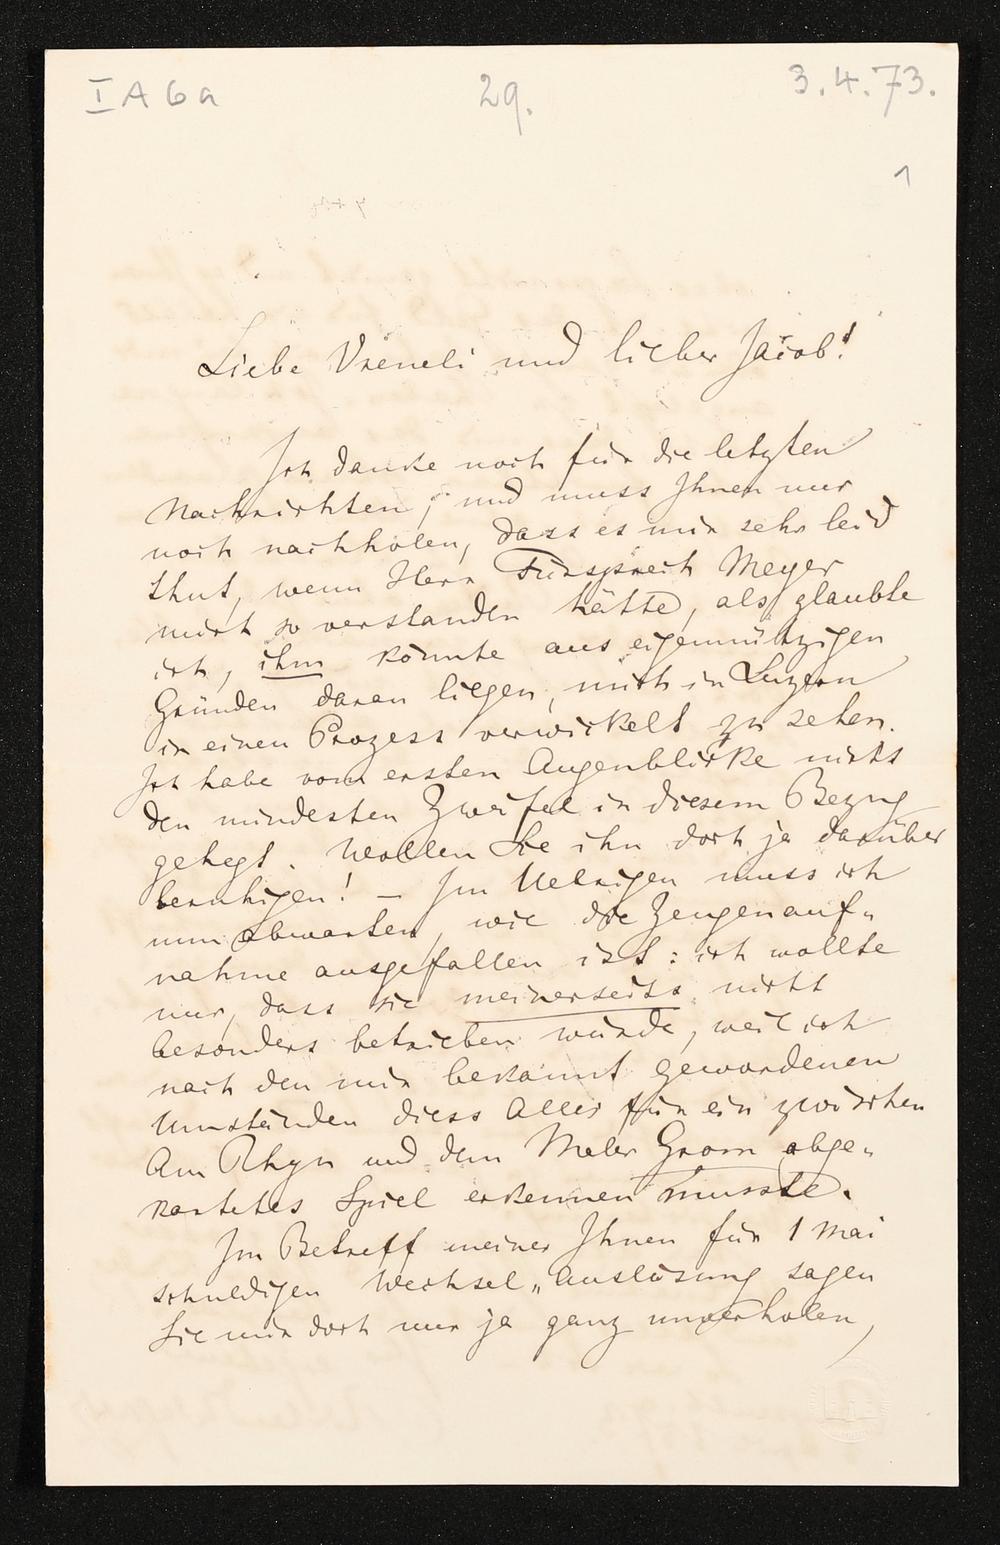 I A 6 a 29. 3.4.73.
1
Liebe Vreneli und lieber Jacob!
Ich danke noch für die letzten
Nachrichten, und muss Ihnen nur
noch nachholen, dass es mir sehr leid
thut, wenn Herr Fürsprech Meyer
mich so verstanden hätte, als glaubte
ich, ihm könnte aus eigennützigen
Gründen daran liegen, mich in Luzern
in einen Prozess verwickelt zu sehen.
Ich habe vom ersten Augenblicke nicht
den mindesten Zweifel in diesem Bezug
gehegt. Wollen Sie ihn doch ja darüber
beruhigen! – Im Uebrigen muss ich
nun abwarten, wie die Zeugenauf-
nahme ausgefallen ist: ich wollte
nur, dass sie meinerseits nicht
besonders betrieben würde, weil ich
nach den mir bekannt gewordenen
Umständen diess Alles für ein zwischen
Am Rhyn und dem Maler abge-
kartetes Spiel erkennen musste.
Im Betreff meiner Ihnen für 1 Mai
schuldigen Wechsel-Auslösung sagen
Sie mir doch nur ja ganz unverholen,